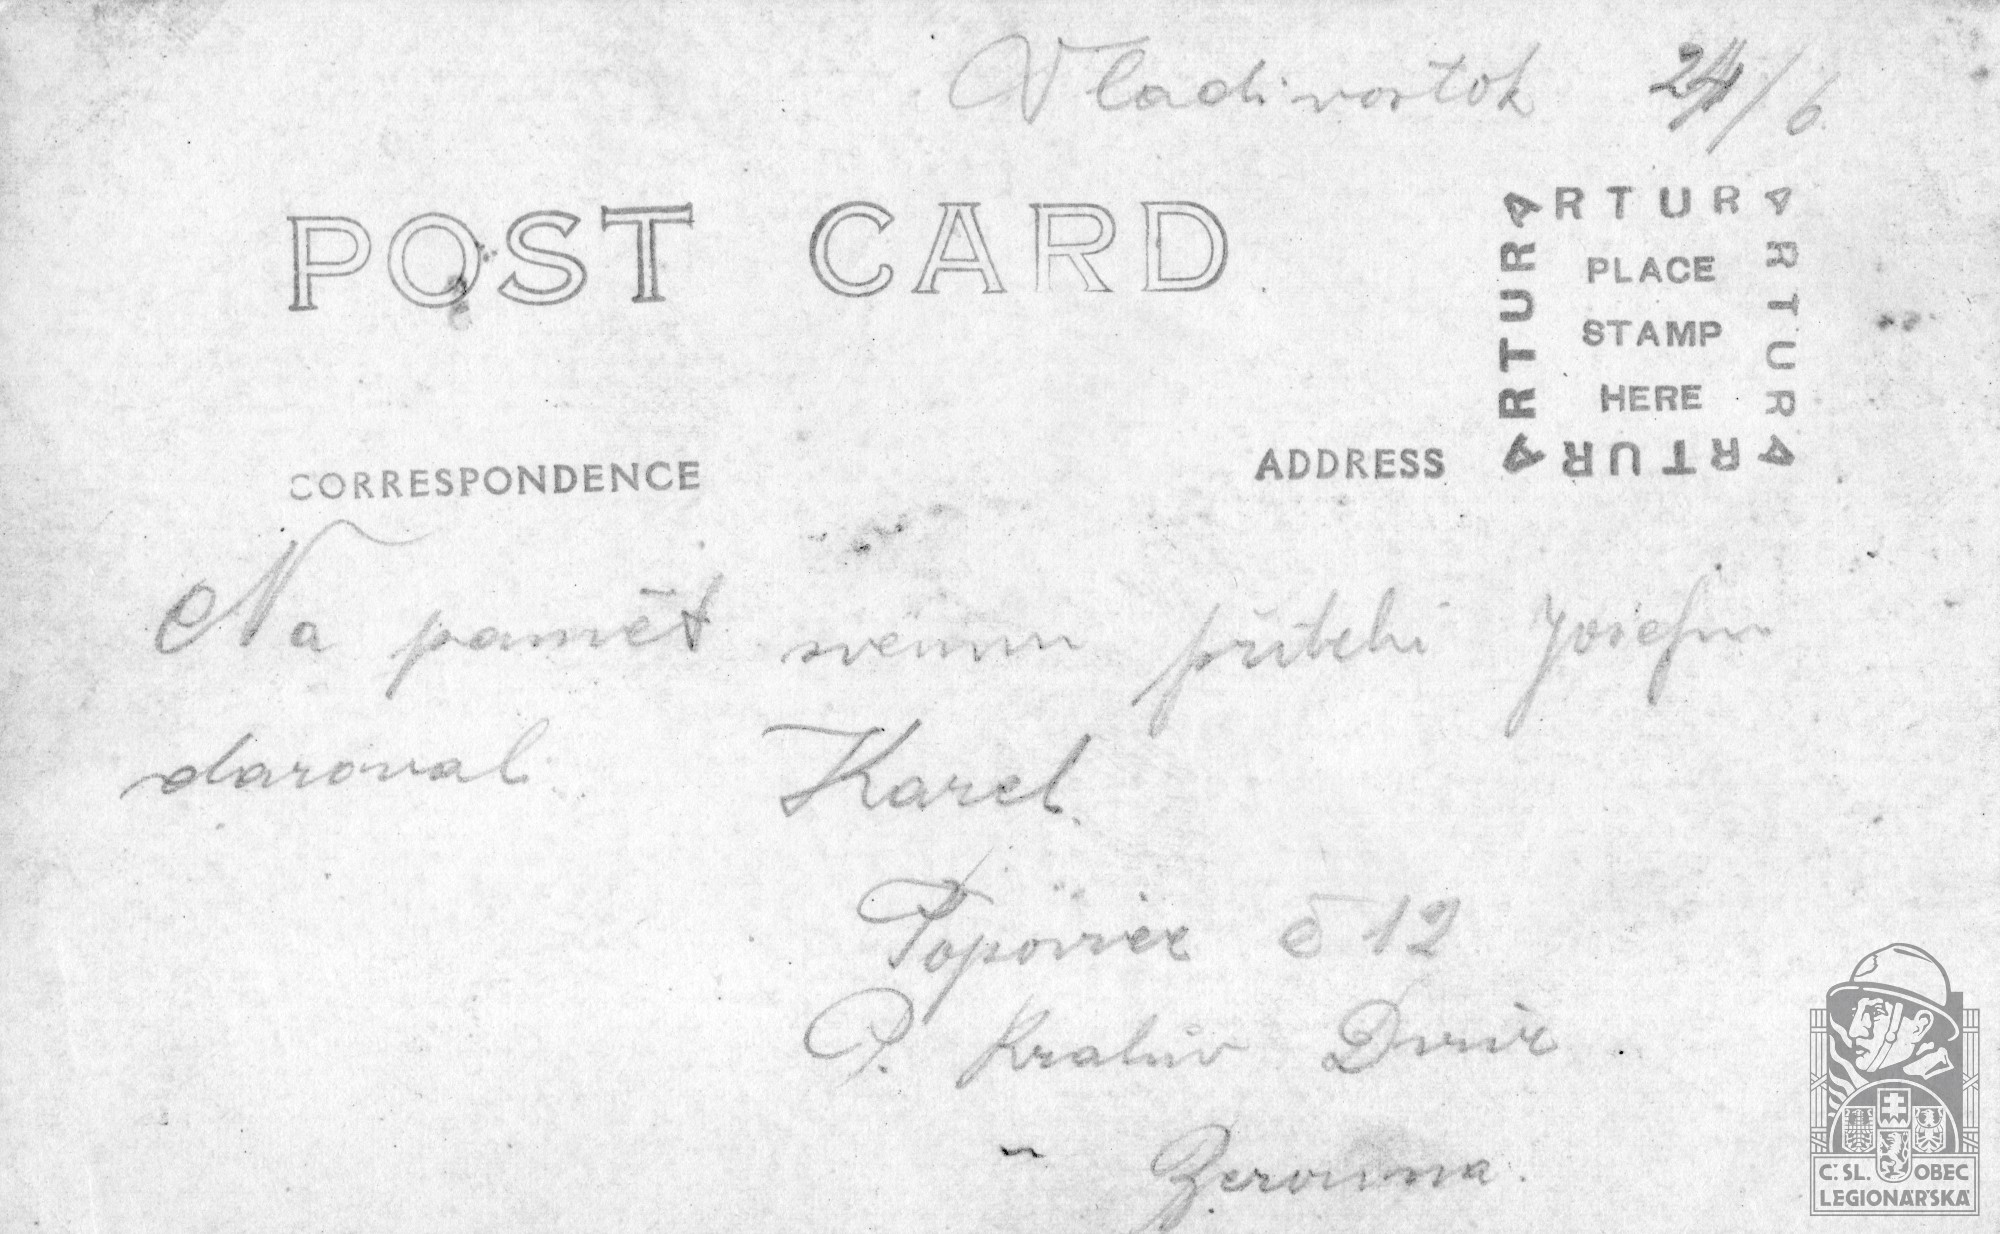 Vladivostok 24/6.
POST CARD
ARTURA
ARTURA
ARTURA
ARTURA
PLACE
STAMP
HERE
CORRESPONDENCE
ADDRESS
Na pamět svemu příteli Josefu
daroval Karel
Popovice č 12
P. Kralův Dvůr
" Berouna.
Č. SL. OBEC
LEGIONÁŘSKÁ